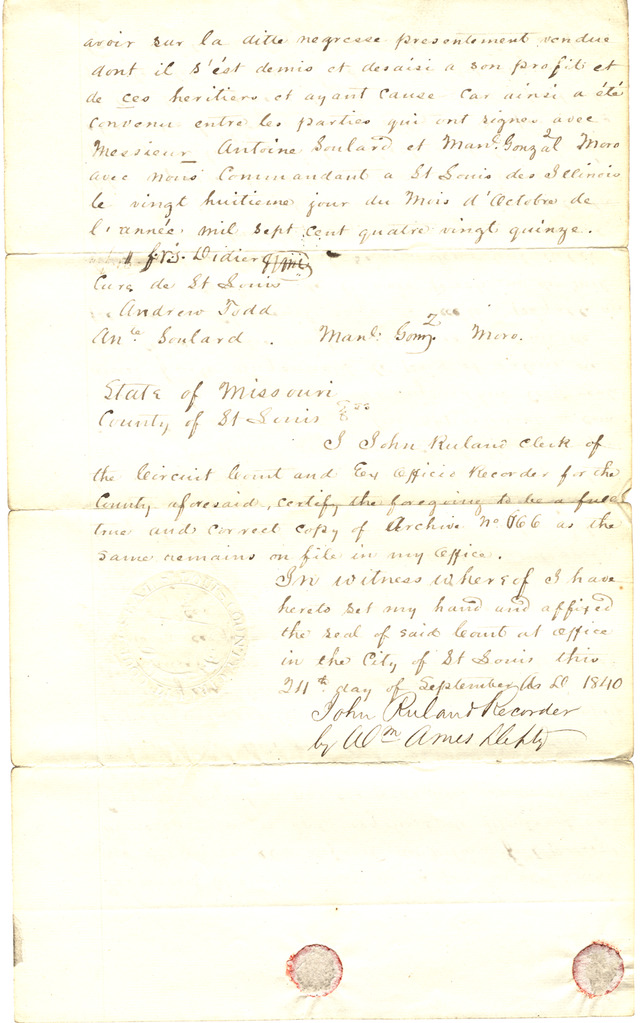 avoir sur la ditte negresse presentement vendue
dont il s'ést demis et desaisi a son profit et
de ces heritiers et ayant cause car ainsi a été
convenu entre les parties qui ont signés avec
Messieur Antoine Soulard et Manl. Gonzal Moro
avec nous Commandant a St Louis des Illinois
le vingt huitieme jour du Mois d'Octobre de
l'année mil sept cent quatre vingt quinze.
frs. Didier
Cure de St Louis
Andrew Todd
Ane Soulard . Manl: Gonz. Moro.
State of Missouri
County of St Louis
I John Ruland Clerk of
the Circuit Court and Ex Officio Recorder for the
County aforesaid, certify the foregoing to be a full
true and correct copy of Archive No 166 as the
same remains on file in my Office.
In witness whereof I have
hereto set my hand and affixed
the seal of said Court at Office
in the City of St Louis this
24th day of September A D 1840
John Ruland Recorder
by Wm Ames Depty